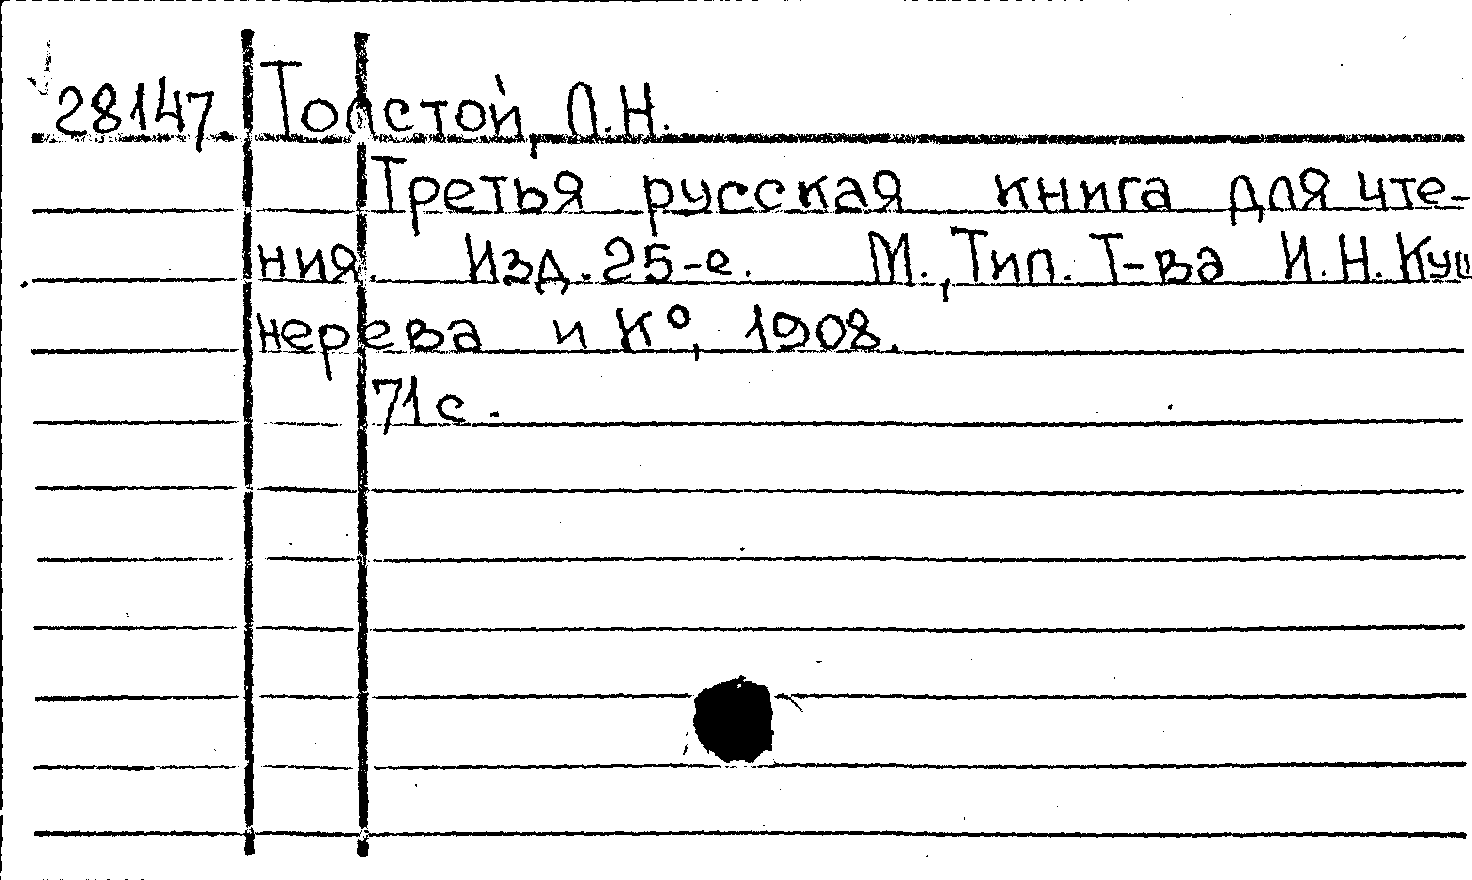 28147 Толстой, Л.Н.
Третья русская книга для чте-
ния. Изд. 25-е. М., Тип. Т-ва И.Н. Куш
нерева и К°, 1908.
71 с.